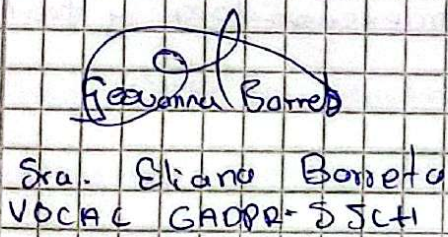 Geovanna Borreto
Sra. Eliana Borreto
VOCAL GADPR-SJCH